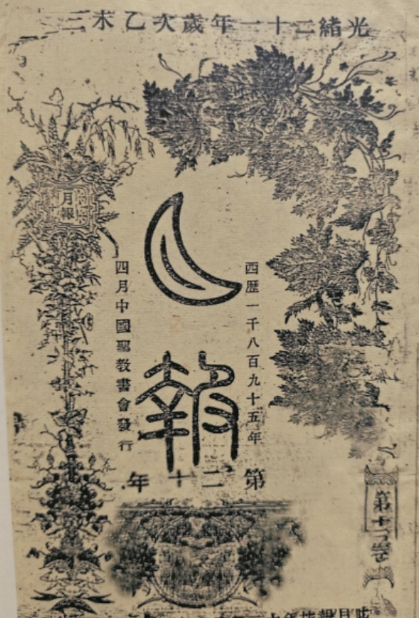 光緒二十一年歲次乙未三
月報
西歷一千八百九十五年
月報
四月中國聖教書會發行
第二十年